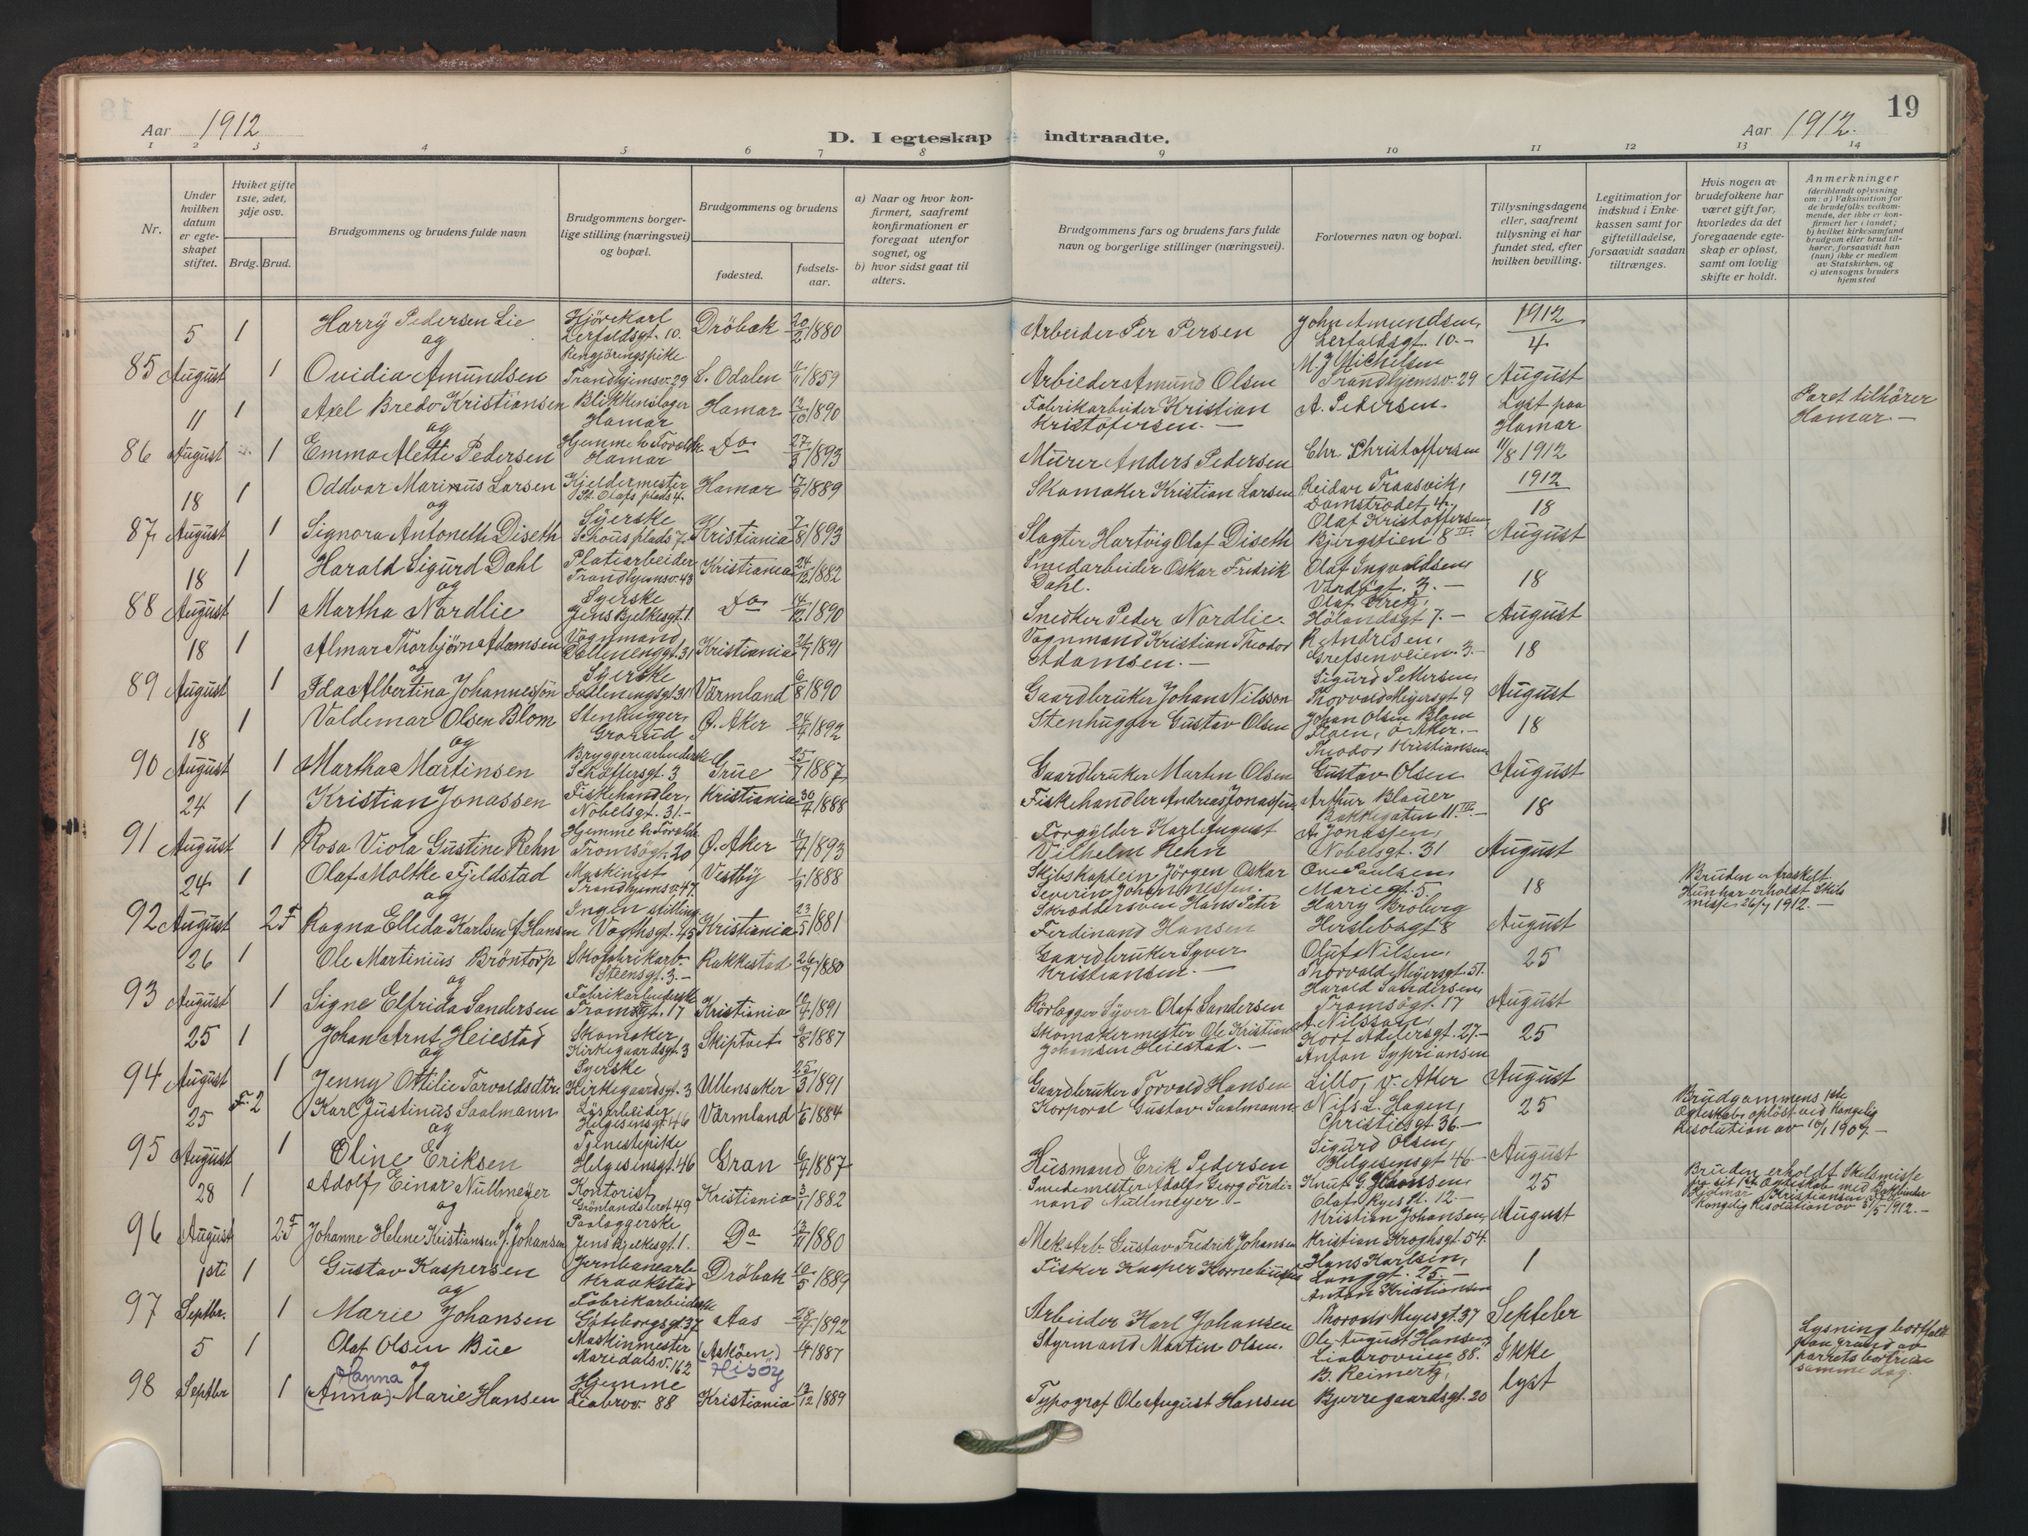 Aar 1912
D. I egteskap indtraadte.
Aar 1912.
19
1 2 3 4 5 6 7 8 9 10 11 12 13 14
Nr.
Under hvilken datum er egteskapet stiftet.
Hvilket gifte 1ste, 2det, 3dje osv.
Brdg. Brud.
Brudgommens og brudens fulde navn
Brudgommens borgerlige stilling (næringsvei) og bopæl.
Brudgommens og brudens
fødested. fødselsaar.
a) Naar og hvor konfirmert, saafremt konfirmationen er foregaat utenfor sognet, og
b) hvor sidst gaat til alters.
Brudgommens fars og brudens fars fulde navn og borgerlige stillinger (næringsvei).
Forlovernes navn og bopæl.
Tillysningsdagene eller, saafremt tillysning ei har fundet sted, efter hvilken bevilling.
Legitimation for indskud i Enkekassen samt for giftetilladelse, forsaavidt saadan tiltrænges.
Hvis nogen av brudefolkene har været gift før, hvorledes da det foregaaende egteskap er opløst, samt om lovlig skifte er holdt.
Anmerkninger (deriblandt oplysning om: a) Vaksination for de brudefolks vedkommende, der ikke er konfirmert her i landet; b) hvilket kirkesamfund brudgom eller brud tilhører, forsaavidt han (hun) ikke er medlem av Statskirken, og c) utensogns bruders hjemsted
5 1 Harry Pedersen Lie Lerfaldsgt. 10. Drøbak 20/2 1880 Arbeider Per Persen John Amundsen, Lerfaldsgt. 10.- 1912 4
og
85 August 1 Ovidia Amundsen Rengjøringspike Trondhjemsv. 29 S. Odalen 1859 Arbieder Amund Olsen M. J. Michelsen Trondhjemsv. 29 August
11 1 Axel Bredo Kristiansen Blikkenslager Hamar Hamar 12/10 1890 Fabrikarbeider Kristian Kristofersen.- A. Pedersen. Lyst paa Hamar Paret tilhører Hamar.-
og
86 August 1 Emma Alette Pedersen Hjemme h Foraldr Hamar Do 27/3 1893 Murer Anders Pedersen Chr. Christoffersen 11/8 1912
18 1 Oddvar Marinus Larsen Kjeldermester St. Olafs plads 4. Hamar 17/9 1889 Skomaker Kristian Larsen Reidar Traasvik, Damstrædet 4. 1912 18
og
87 August 1 Signora Antonette Diseth Syerske Schous plads 7 Kristiania 7/8 1893 Slagter Hartvig Olaf Diseth Olaf Kristoffersen, Bjergstien 8 II August
18 1 Harald Sigurd Dahl Platearbeider Trondhjemsv. 43 Kristiania 24/12 1882 Smedarbeider Oskar Fredrik Dahl. Olaf Ingvaldsen, Vardøgt. 3.- 18
og
88 August 1 Martha Nordlie Syerske Jens Bjelkesgt. 1 Do 14/12 1890 Snedker Peder Nordlie. Olaf Kretz, Hølandsgt 7.- August
18 1 Almar Thorbjørn Adamsen Vognmand, Dælenenggt. 31 Kristiania 1891 Vognmand Kristian Theodor Adamsen.- R. Andresen, Grefsenveien 3.- 18
og
89 August 1 Ida Albertina Johannesson Syerske Dælenengsgt 31 Värmland 6/8 1890 Gaardbruker Johan Nilsson Sigurd Pettersen, Thorvald Meyersgt. 9 August
18 1 Valdemar Olsen Blom Stenhugger, Grorud Ø. Aker 24/4 1892 Stenhugger Gustav Olsen Johan Olsen Blom Ø Aker.- 18
og
90 August 1 Martha Martinsen Bryggeriarbeiderske Schæffersgt. 3 Grue 25/7 1887 Gaardbruker Martin Olsen Theodor Kristiansen Gustav Olsen August
24 1 Kristian Jonassen Fiskehandler, Nobelsgt. 31.- Kristiania 30/4 1888 Fiskehandler Andreas Jonassen Arthur Blauer Bakkegaten 11 III.- 18
91 August 1 Rosa Viola Gustine Rehn Hjemme h Foraldr Tromsøgt. 20 Ø. Aker 1893 Forgylder Karl August Vilhelm Rehn A. Jonassen, Nobelsgt. 31 August
24 1 Olaf Moltke Fjeldstad Maskinist Trondhjemsv. 47 Vestby 1888 Skibskaptein Jörgen Oskar Severin Johannessen. Ove Paulsen Mariegt. 5. 18 Bruden er fraskilt Hun har erholdt Skilsmisse 26/7 1912.-
og
92 August 2 F Ragna Elleda Karlsen f. Hansen Ingen stilling Vogtsgt. 45 Kristiania 23/5 1881 Skræddersven Hans Peter Ferdinand Hansen Harry Broberg Herslebsgt 8 August
26 1 Ole Martinius Bröntorp Skofabrikarb. Steensgt. 3.- Rakkestad 1880 Gaardbruker Syver Kristiansen.- Oluf Nilsen, Thorvald Meyersgt. 51. 25
og
93 August 1 Signe Elfrida Sandersen Fabrikarbeiderske Tromsøgt. 17 Kristiania 1891 Rörlægger Syver Olaf Sandersen Harald Sandersen, Tromsögt. 17 August
25 1 Johan Arnt Heiestad Skomaker, Kirkegaardsgt. 3 Skiptvet 1887 Skomakermester Ole Kristian Johansen Heiestad.- A. Nilsson, Kort Adelersgt. 27.- 25
og
94 August 1 Jenny Ottilie Torvaldsdtr. Syerske Kirkegaardsgt. 3 Ullensaker 25/3 1891 Gaardbruker Torvald Hansen Anton Sypriansen Lillo, V. Aker August
25 F. 2 Karl Justinus Saalmann Helgesensgt. 46 Värmland 1/6 1884 Korporal Gustav Saalmann Nils L. Hagen, Christiesgt 36.- 25 Brudgommens 1ste Egteskab opløst ved Kongelig Resolution av 10/1 1907.-
og
95 August 1 Oline Eriksen Tjenestepike Helgesensgt. 46 Gran 1887 Husmand Erik Pedersen Sigurd Olsen, Helgesensgt 46.- August
28 1 Adolf Einar Nullmeyer Kontorist Grönlandsleret 49 Kristiania 3/1 1882 Smedemester Adolf Georg Ferdinand Nullmeyer- Olaf Ryes Pl. 12.- 25 Bruden erholdt Skilsmisse fra sit 1ste Egteskab med Hjalmar Kristiansen Kongelig Resolution av 31/5 1912.-
og
96 August 2 F Johanne Helene Kristiansen f. Johansen Jens Bjelkesgt. 1. Do 13/11 1880 Mek. Arb. Gustav Fredrik Johansen Kristian Johansen, Kristian Kroghsgt. 54. August
1ste 1 Gustav Kaspersen Jernbanearb Kraakstad Dröbak 10/5 1889 Fisker Kasper Hans Karlsen, Langgt. 25.- 1
og
97 Septbr. 1 Marie Johansen Fabrikarbeiderske Göteborgsgt 37 Aas 1892 Arbeider Karl Johansen Anton Kristiansen Septeber
5 1 Olaf Olsen Bue Maskinmester Maridalsv. 162 (Asköen,) Hisöy 1887 Styrmand Martin Olsen. Ole August Hansen, Liabroveien 88. Ikke Lysning bortfaldt paa grund av parrets bortreise samme dag.
og Hanna
98 Septbr 1 (Anna) Marie Hansen Hjemme Liabrov. 88 Kristiania 13/12 1889 Typograf Ole August Hansen B. Reimertz, Bjerregaardsgt. 20 lyst